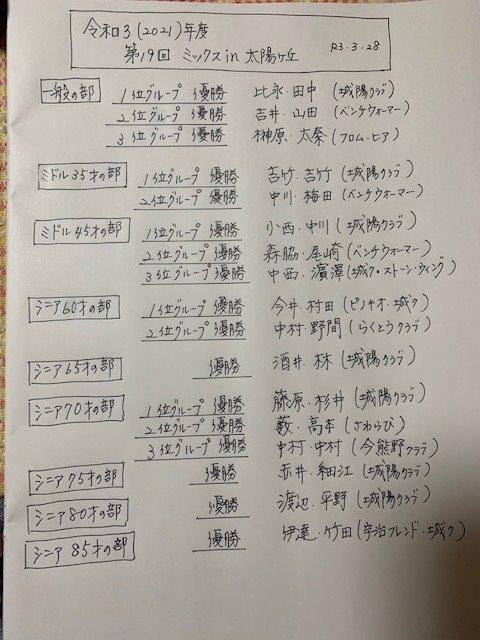 令和3(2021)年度
第19回 ミックスin太陽ヶ丘 R3.3.28
一般の部 1位グループ 優勝 比永・田中 (城陽クラブ)
2位グループ 優勝 吉井・山田 (ベンチウォーマー)
3位グループ 優勝 榊原・太秦 (フロム・ヒア)
ミドル35才の部 1位グループ 優勝 吉竹・吉竹 (城陽クラブ)
2位グループ 優勝 中川・梅田 (ベンチウォーマー)
ミドル45才の部 1位グループ 優勝 小西・中川 (城陽クラブ)
2位グループ 優勝 森脇・尾崎 (ベンチウォーマー)
3位グループ 優勝 中西・濱澤 (城ク・ストーン・ウィング)
シニア60才の部 1位グループ 優勝 今井・村田 (ピノキオ・城ク)
2位グループ 優勝 中村・野間 (らくとうクラブ)
シニア65才の部 優勝 酒井・林 (城陽クラブ)
シニア70才の部 1位グループ 優勝 藤原・杉井 (城陽クラブ)
2位グループ 優勝 薮・高本 (さわらび)
3位グループ 優勝 中村・中村 (今熊野クラブ)
シニア75才の部 優勝 赤井・細江 (城陽クラブ)
シニア80才の部 優勝 渡辺・平野 (城陽クラブ)
シニア85才の部 優勝 伊達・竹田 (宇治フレンド・城ク)